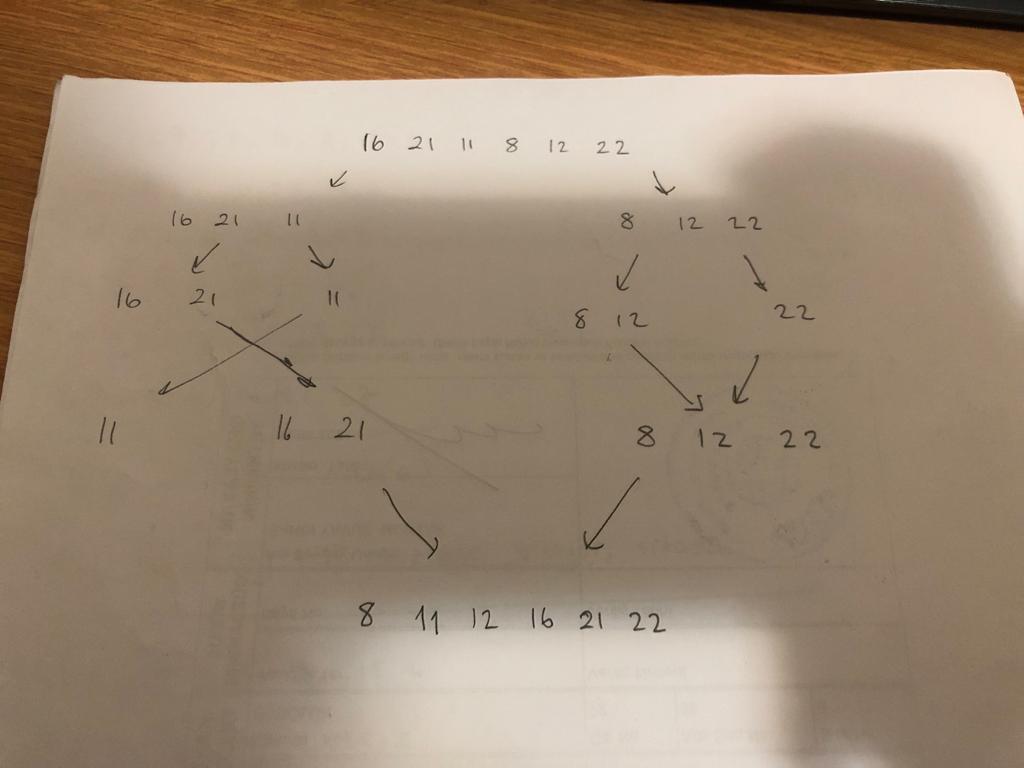 16 21 11 8 12 22
16 21 11 8 12 22
16 21 11 8 12 22
11 16 21 8 12 22
8 11 12 16 21 22